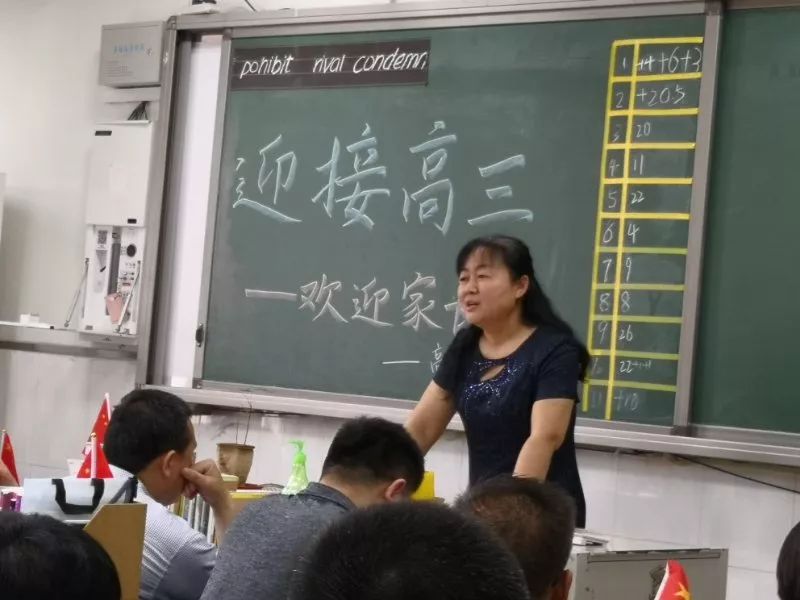 pohibit rival condemn
迎接高三
—欢迎家
—高
1 +4+6+3
2 +205
3 20
4 11
5 22
6 4
7 9
8 8
9 26
22
11 +10